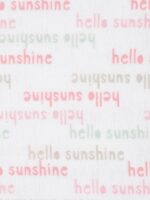 hello sunshine
hello sunshine
hello sunshine
hello sunshine
hello sunshine
hello sunshine
hello sunshine
hello sunshine
hello sunshine
hello sunshine